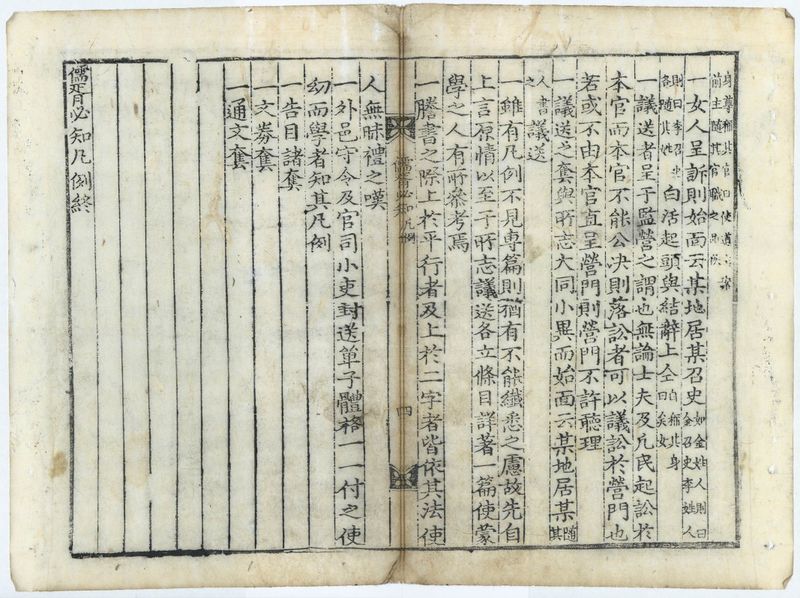 前主隨其官職之品秩
一女人呈訴則始面云某地居某召史如金姓人則曰金召史李姓人
則曰李召史各隨其姓白活起頭與結辭上仝自稱其身曰矣女
一議送者呈于監營之謂也無論士夫及凡民起訟於
本官而本官不能公决則落訟者可以議訟於營門也
若或不由本官直呈營門則營門不許聽理
一議送之套與所志大同小異而始面云某地居某隨其
人書之議送
一雖有凡例不見專篇則猶有不能纖悉之慮故先自
上言原情以至于所志議送各立條目詳著一篇使蒙
學之人有所叅考焉
一謄書之際上於平行者及上於二字者皆依其法使
儒胥必知 凡例 四
人無昧禮之嘆
一外邑守令及官司小吏封送單子體格一一付之使
幼而學者知其凡例
一告目諸套
一文券套
一通文套
儒胥必知凡例終